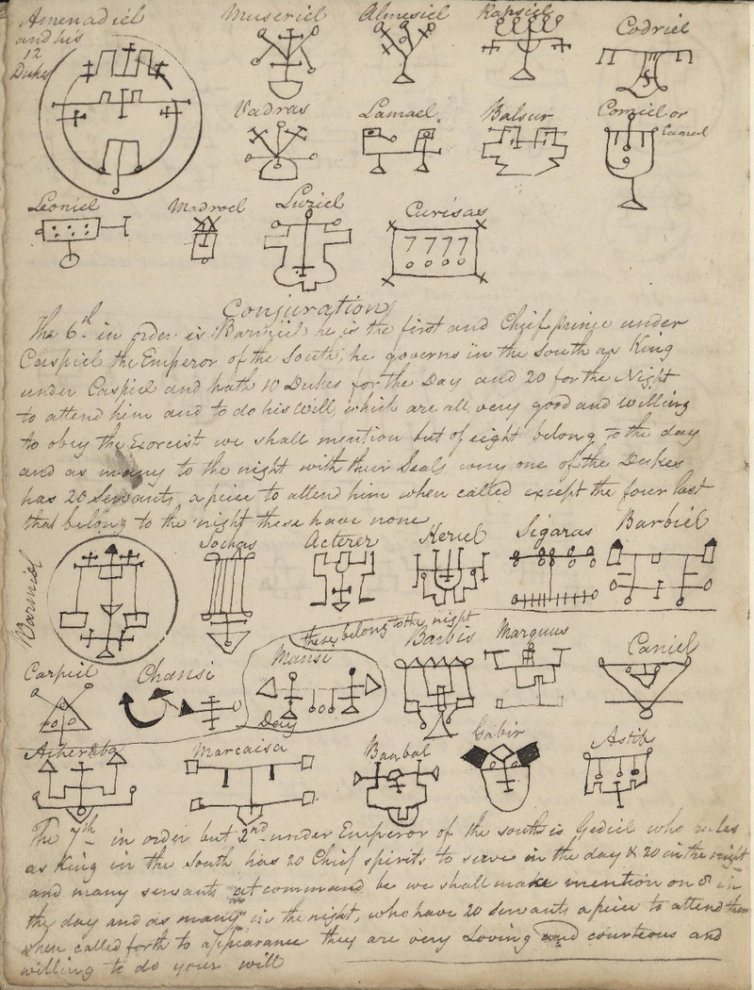 Amenadiel
and his
12
Dukes
Museriel
Almesiel
Rapsiel
Codriel
Vadras
Lamael
Balsur
Comiel or
Camiel
Leoniel
Madroel
Luziel
Curisas
7777
Conjuration
The 6th in order is Barmiel he is the first and Chief prince under
Caspiel the Emperor of the South, he governs in the South as King
under Caspiel and hath 10 Dukes for the Day and 20 for the Night
to attend him and to do his Will which are all very good and Willing
to obey the Exorcist we shall mention but of eight belong to the day
and as many to the night with their Seals every one of the Dukes
has 20 Servants a piece to attend him when called except the four last
that belong to the night these have none
Barmiel
Sochas
Acterer
Keriel
Sigaras
Barbiel
these belong to the night
Carpiel
Chansi
Mansi
Day
Barbis
Marguns
Caniel
Acheraba
Marcaisa
Baabal
Gabir
Astib
The 7th in order but 2nd under Emperor of the south is Gediel who rules
as King in the South has 20 Chief spirits to serve in the day & 20 in the night
and many servants at command be we shall make mention on 8 in
the day and as many in the night, who have 20 servants a piece to attend them
when called forth to appearance they are very Loving and courteous and
willing to do your will